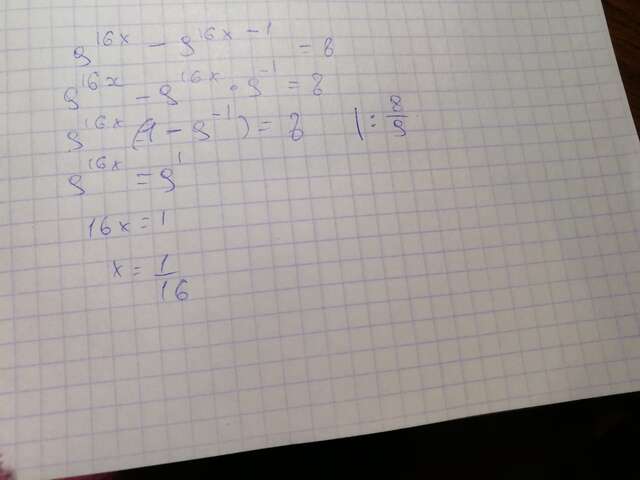 9^{16x} - 9^{16x-1} = 8
9^{16x} - 9^{16x} · 9^{-1} = 8
9^{16x} (1 - 9^{-1}) = 8 | : \frac{8}{9}
9^{16x} = 9^{1}
16x = 1
x = \frac{1}{16}